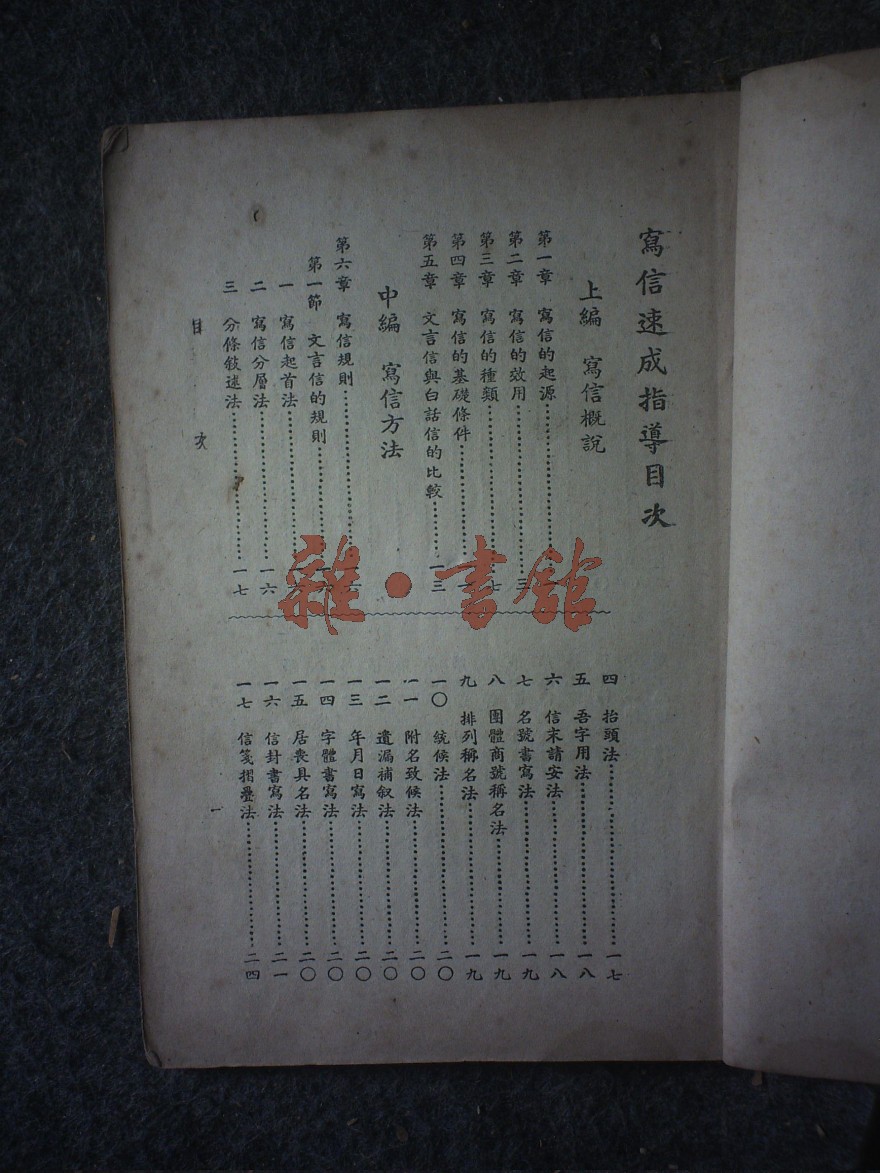 寫信速成指導目次
上編 寫信概說
第一章 寫信的起源
第二章 寫信的效用 三
第三章 寫信的種類 七
第四章 寫信的基礎條件
第五章 文言信與白話信的比較 一三
中編 寫信方法
第六章 寫信規則
第一節 文言信的規則
一 寫信起首法
二 寫信分層法 一六
三 分條敍述法 一七
四 抬頭法 一七
五 吾字用法 一八
六 信末請安法 一八
七 名號書寫法 一九
八 團體商號稱名法 一九
九 排列稱名法 一九
一〇 統候法 二〇
一一 附名致候法 二〇
一二 遺漏補叙法 二〇
一三 年月日寫法 二〇
一四 字體書寫法 二〇
一五 居喪具名法 二〇
一六 信封書寫法 二一
一七 信箋摺疊法 二四
目次
一
雜·書館